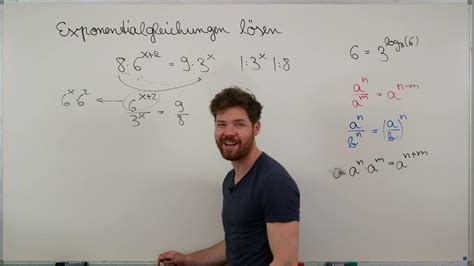 Exponentialgleichungen lösen
8·6^(x+2) = 9·3^x |:3^x |:8
6^x 6^2 ← 6^(x+2)/3^x = 9/8
6 = 3^(log₃(6))
a^n/a^m = a^(n-m)
a^n/b^n = (a/b)^n
a^n·a^m = a^(n+m)